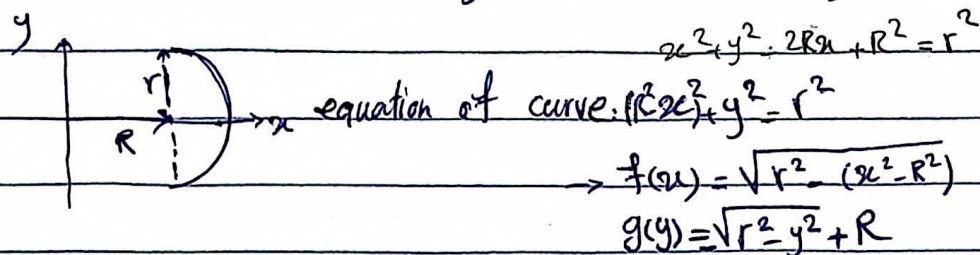 y
x²+y²-2Rx+R²=r²
r
x equation of curve: (R²x)²+y²=r²
R
→ f(x)=√r²-(x²-R²)
g(y)=√r²-y²+R